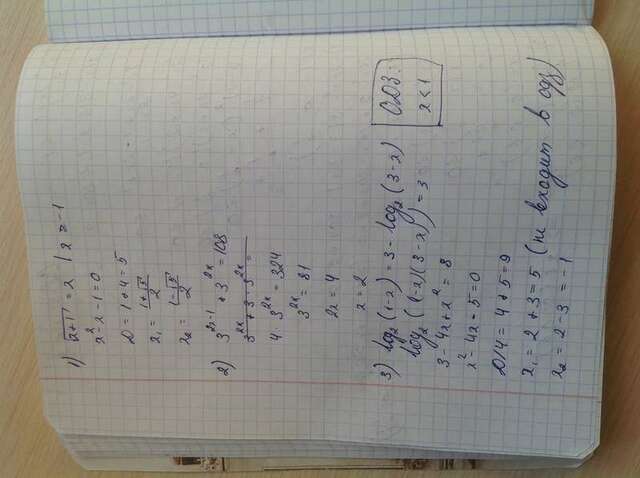 1) √x+1 = x | x ≥ -1
x² - x - 1 = 0
D = 1 + 4 = 5
x₁ = (1+√5)/2
x₂ = (1-√5)/2
2) 3^(2x-1) + 3^(2x) = 108
3^(2x) + 3 · 3^(2x) =
4 · 3^(2x) = 324
3^(2x) = 81
2x = 4
x = 2
3) log₂(1-x) = 3 - log₂(3-x)
log₂((1-x)(3-x)) = 3
ОДЗ:
x < 1
3 - 4x + x² = 8
x² - 4x - 5 = 0
D/4 = 4 + 5 = 9
x₁ = 2 + 3 = 5 (не входит в одз)
x₂ = 2 - 3 = -1